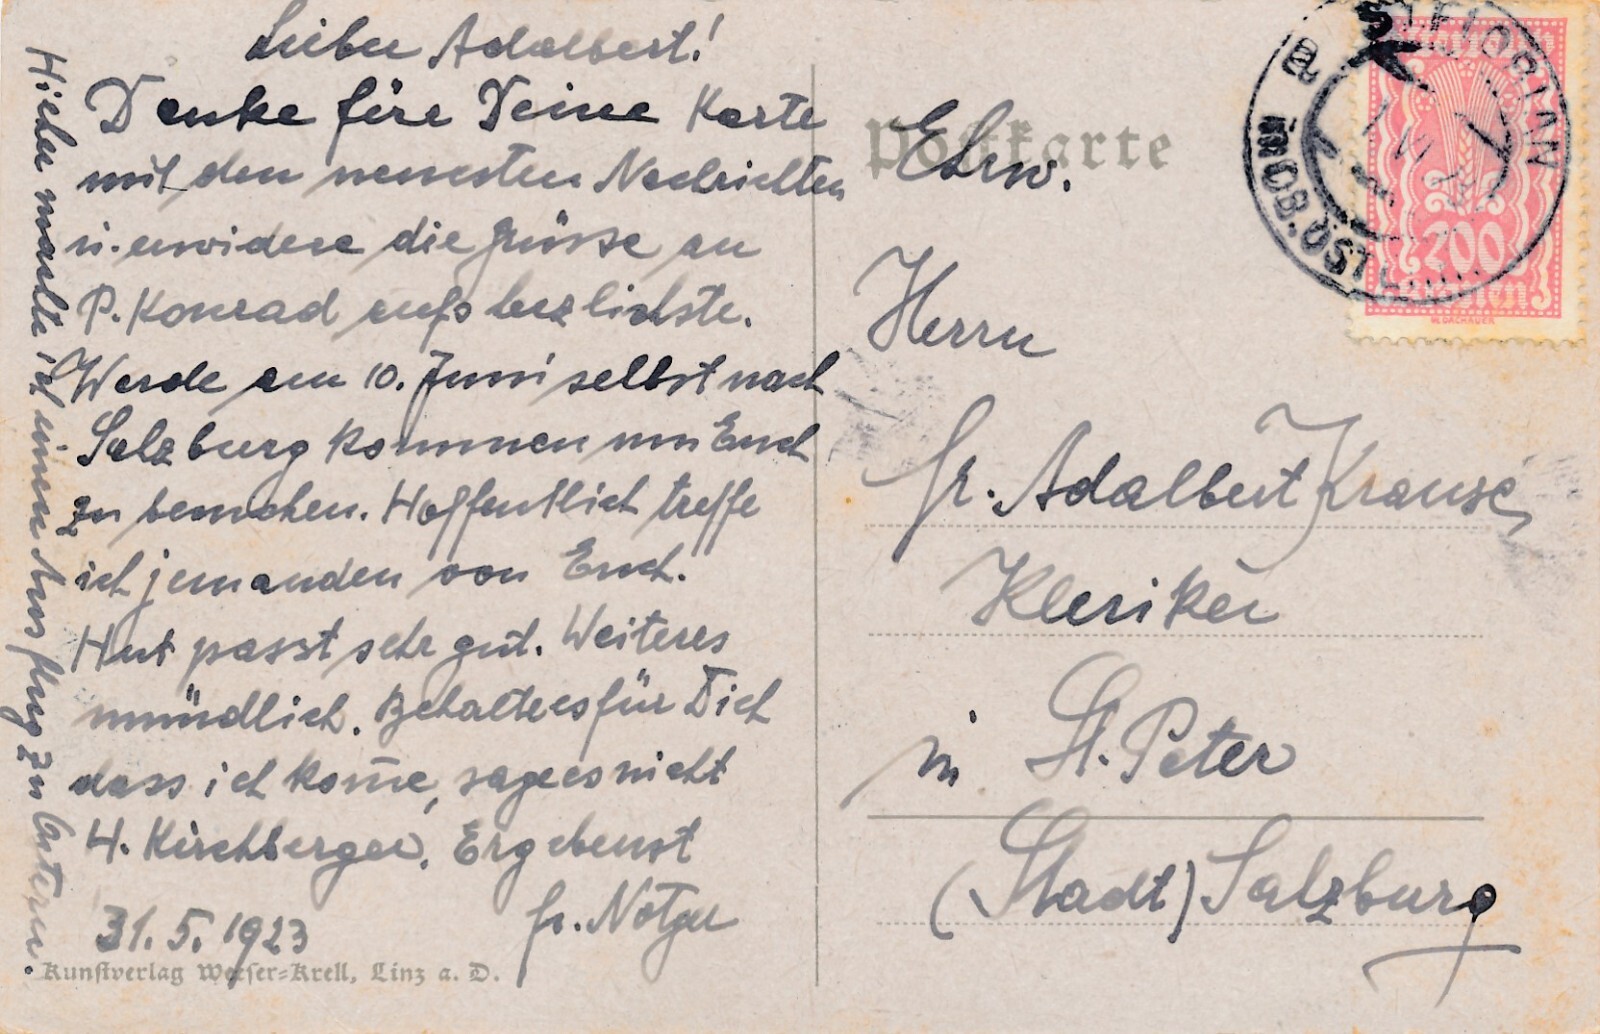 Lieber Adalbert!
Danke für Deine Karte
mit den neuesten Nachrichten
u. erwidere die Grüsse an
P. Konrad aufs herzlichste.
Werde am 10. Juni selbst nach
Salzburg kommen um Euch
zu besuchen. Hoffentlich treffe
ich jemanden von Euch.
Hut passt sehr gut. Weiteres
mündlich. Behalte es für Dich
dass ich kom̅e, sage es nicht
H. Kirchberger. Ergebenst
fr. Notger
31. 5. 1923
Hieher machte ich einen Ausflug zu
Kunstverlag Werser-Krell, Linz a. D.
Postkarte
Ehrw.
Herrn
fr. Adalbert Krause,
Kleriker
in St. Peter
(Stadt) Salzburg
ST. FLORIAN
IM OB. ÖST.
a
200
Kronen